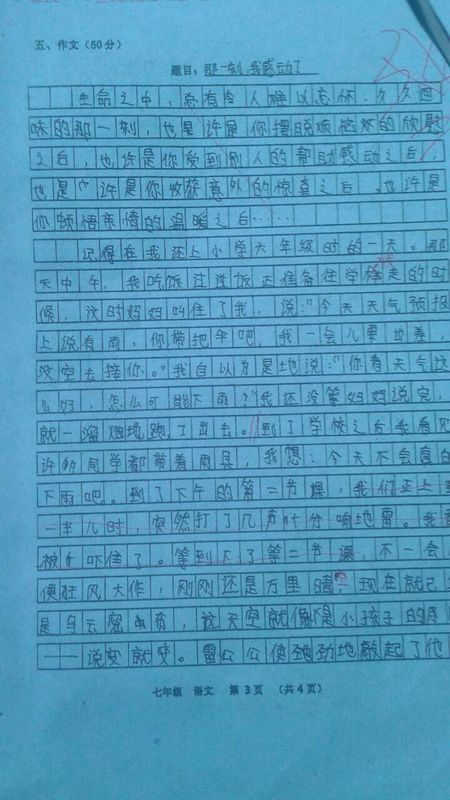 五、作文（50分）
题目：那一刻，我感动了
生命之中，总有令人难以忘怀、久久回
味的那一刻，也是许是你摆脱烦恼的欣慰
之后，也许是你受到别人的帮助感动之后，
也是许是你收获意外的惊喜之后，也许是
你顿悟亲情的温暖之后……
记得在我还上小学六年级时的一天。那
天中午，我吃饭过过饭正准备往学校走的时
候，这时妈妈叫住了我，说："今天天气预报
上说有雨，你带把伞吧，我一会儿要出差，
没空去接你。"我自以为是地说："你看天气这
么好，怎么可能下雨？"我还没等妈妈说完，
就一溜烟地跑了出去。到了学校之后我看见
许多同学都带着雨具，我想：今天不会真的
下雨吧。到了下午的第二节课，我们正上
一半儿时，突然打了几声十分响地雷。我
被吓住了。等到下了第二节课，不一会
便狂风大作，刚刚还是万里晴，现在就已
是乌云密布，这天空就像是小孩子的
一一说变就变。雷公公使劲劲地敲起了他
七年级 语文 第3页 （共4页）